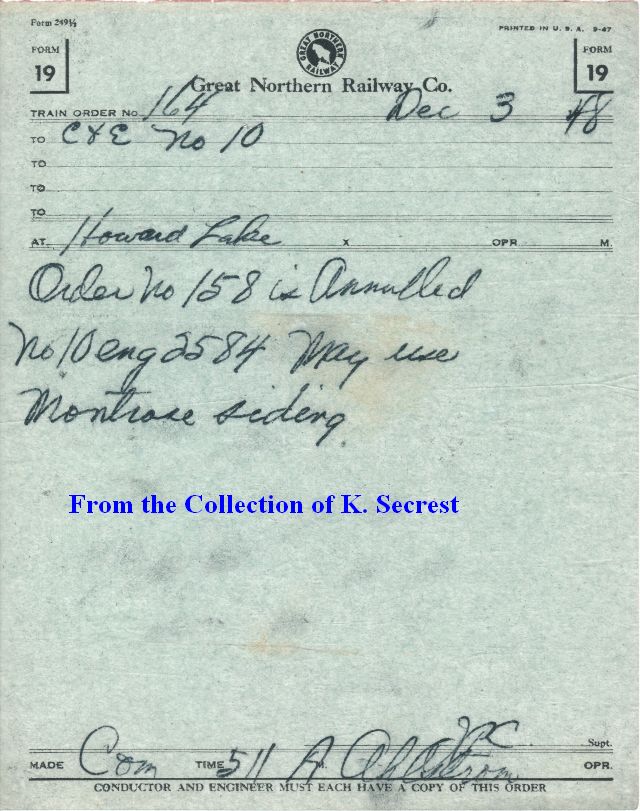 Form 249½
PRINTED IN U. S. A. 9-47
FORM
19
GREAT NORTHERN RAILWAY
FORM
19
Great Northern Railway Co.
TRAIN ORDER No. 164 Dec 3 48
TO C&E No 10
TO
TO
TO
AT Howard Lake X OPR. M.
Order No 158 is Annulled
No 10 eng 2584 May use
Montrose siding
From the Collection of K. Secrest
Supt.
MADE Com TIME 511 A M. Ahlstrom OPR.
CONDUCTOR AND ENGINEER MUST EACH HAVE A COPY OF THIS ORDER